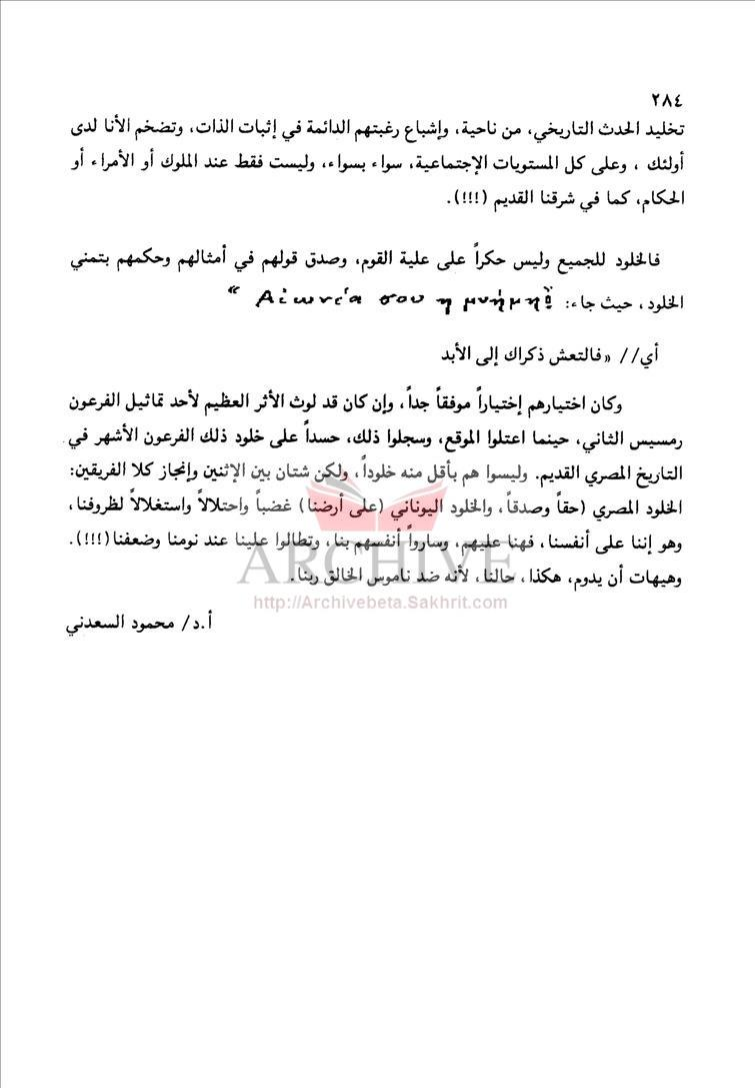 ٢٨٤
تخليد الحدث التاريخي، من ناحية، وإشباع رغبتهم الدائمة في إثبات الذات، وتضخم الأنا لدى
أولئك ، وعلى كل المستويات الإجتماعية، سواء بسواء، وليست فقط عند الملوك أو الأمراء أو
الحكام، كما في شرقنا القديم (!!!).
فالخلود للجميع وليس حكراً على علية القوم، وصدق قولهم في أمثالهم وحكمهم بتمني
الخلود ، حيث جاء: “ Αἰωνία σου η μνήμη
أي// «فالتعش ذكراك إلى الأبد
وكان اختيارهم إختياراً موفقاً جداً، وإن كان قد لوث الأثر العظيم لأحد تماثيل الفرعون
رمسيس الثاني، حينما اعتلوا الموقع، وسجلوا ذلك، حسداً على خلود ذلك الفرعون الأشهر في
التاريخ المصري القديم. وليسوا هم بأقل منه خلوداً، ولكن شتان بين الإثنين وإنجاز كلا الفريقين:
الخلود المصري (حقاً وصدقاً، والخلود اليوناني (على أرضنا) غضباً واحتلالاً واستغلالاً لظروفنا،
وهو إننا على أنفسنا، فهنا عليهم، وساروا أنفسهم بنا، وتطالوا علينا عند نومنا وضعفنا(!!!).
وهيهات أن يدوم، هكذا ، حالنا، لأنه ضد ناموس الخالق ربنا.
ARCHIVE
http://Archivebeta.Sakhrit.com
أ.د/ محمود السعدني